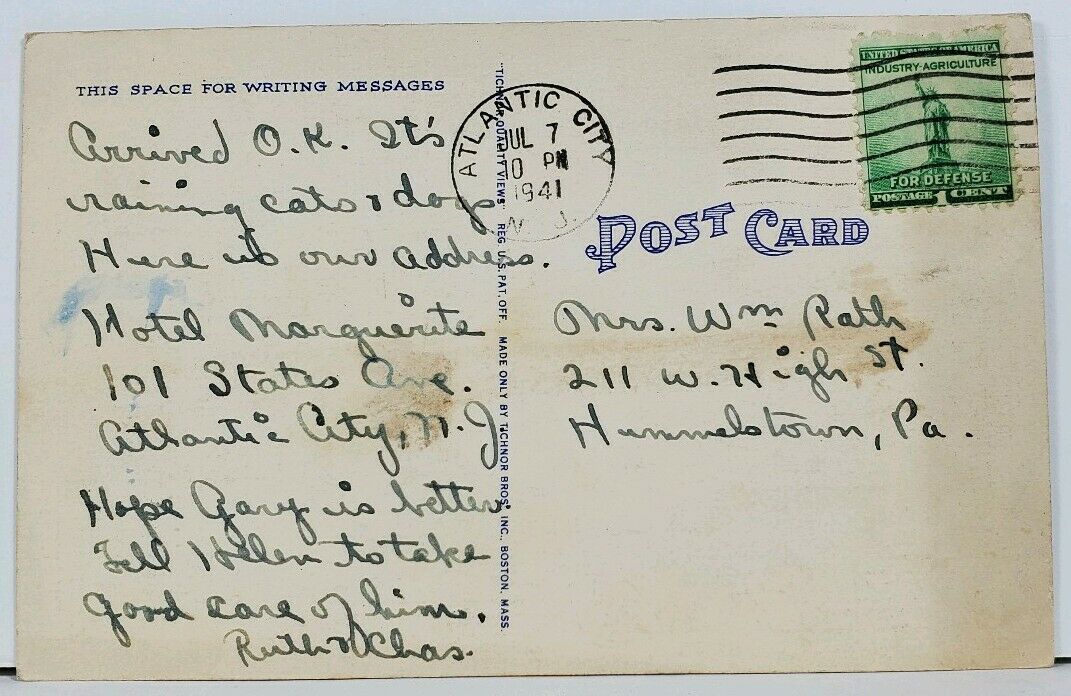 THIS SPACE FOR WRITING MESSAGES
Arrived O.K. It's
raining cats & dogs
Here is our address.
Hotel Marguerite
101 States Ave.
Atlantic City, N.J
Hope Gary is better.
Tell Helen to take
good care of him.
Ruth & Chas.
"TICHNOR QUALITY VIEWS" REG. U.S. PAT. OFF. MADE ONLY BY TICHNOR BROS. INC., BOSTON, MASS.
ATLANTIC CITY
JUL 7
10 PM
1941
N. J.
UNITED STATES OF AMERICA
INDUSTRY-AGRICULTURE
FOR DEFENSE
POSTAGE 1 CENT
POST CARD
Mrs. Wm Rath
211 W. High St.
Hummelstown, Pa.